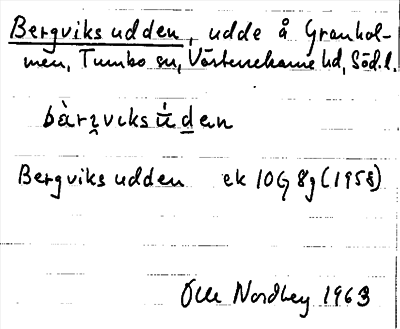 Bergviksudden, udde å Granhol-
men, Tumbo sn, Västerrekarne hd, Söd.l.
bàrʒvıksǘden
Bergviksudden ek 10G 8g (1958)
Olle Nordberg 1963